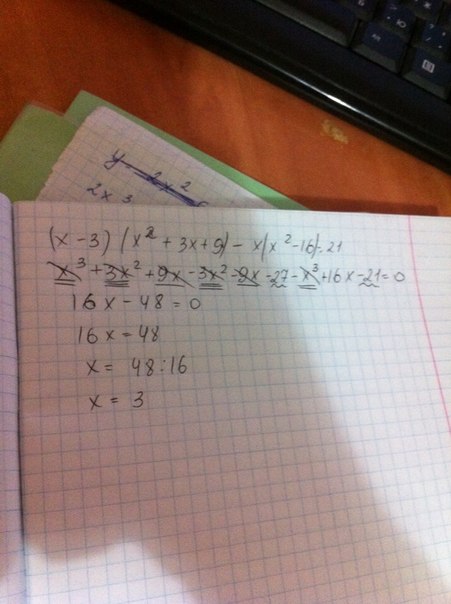 y = 2x²
2x³
(x - 3) (x² + 3x + 9) - x(x² - 16) = 21
x³ + 3x² + 9x - 3x² - 9x - 27 - x³ + 16x - 21 = 0
16x - 48 = 0
16x = 48
x = 48 : 16
x = 3